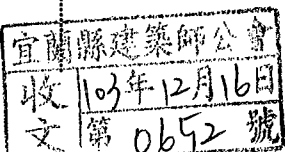 宜蘭縣建築師公會
收文
103年12月16日
第0652號